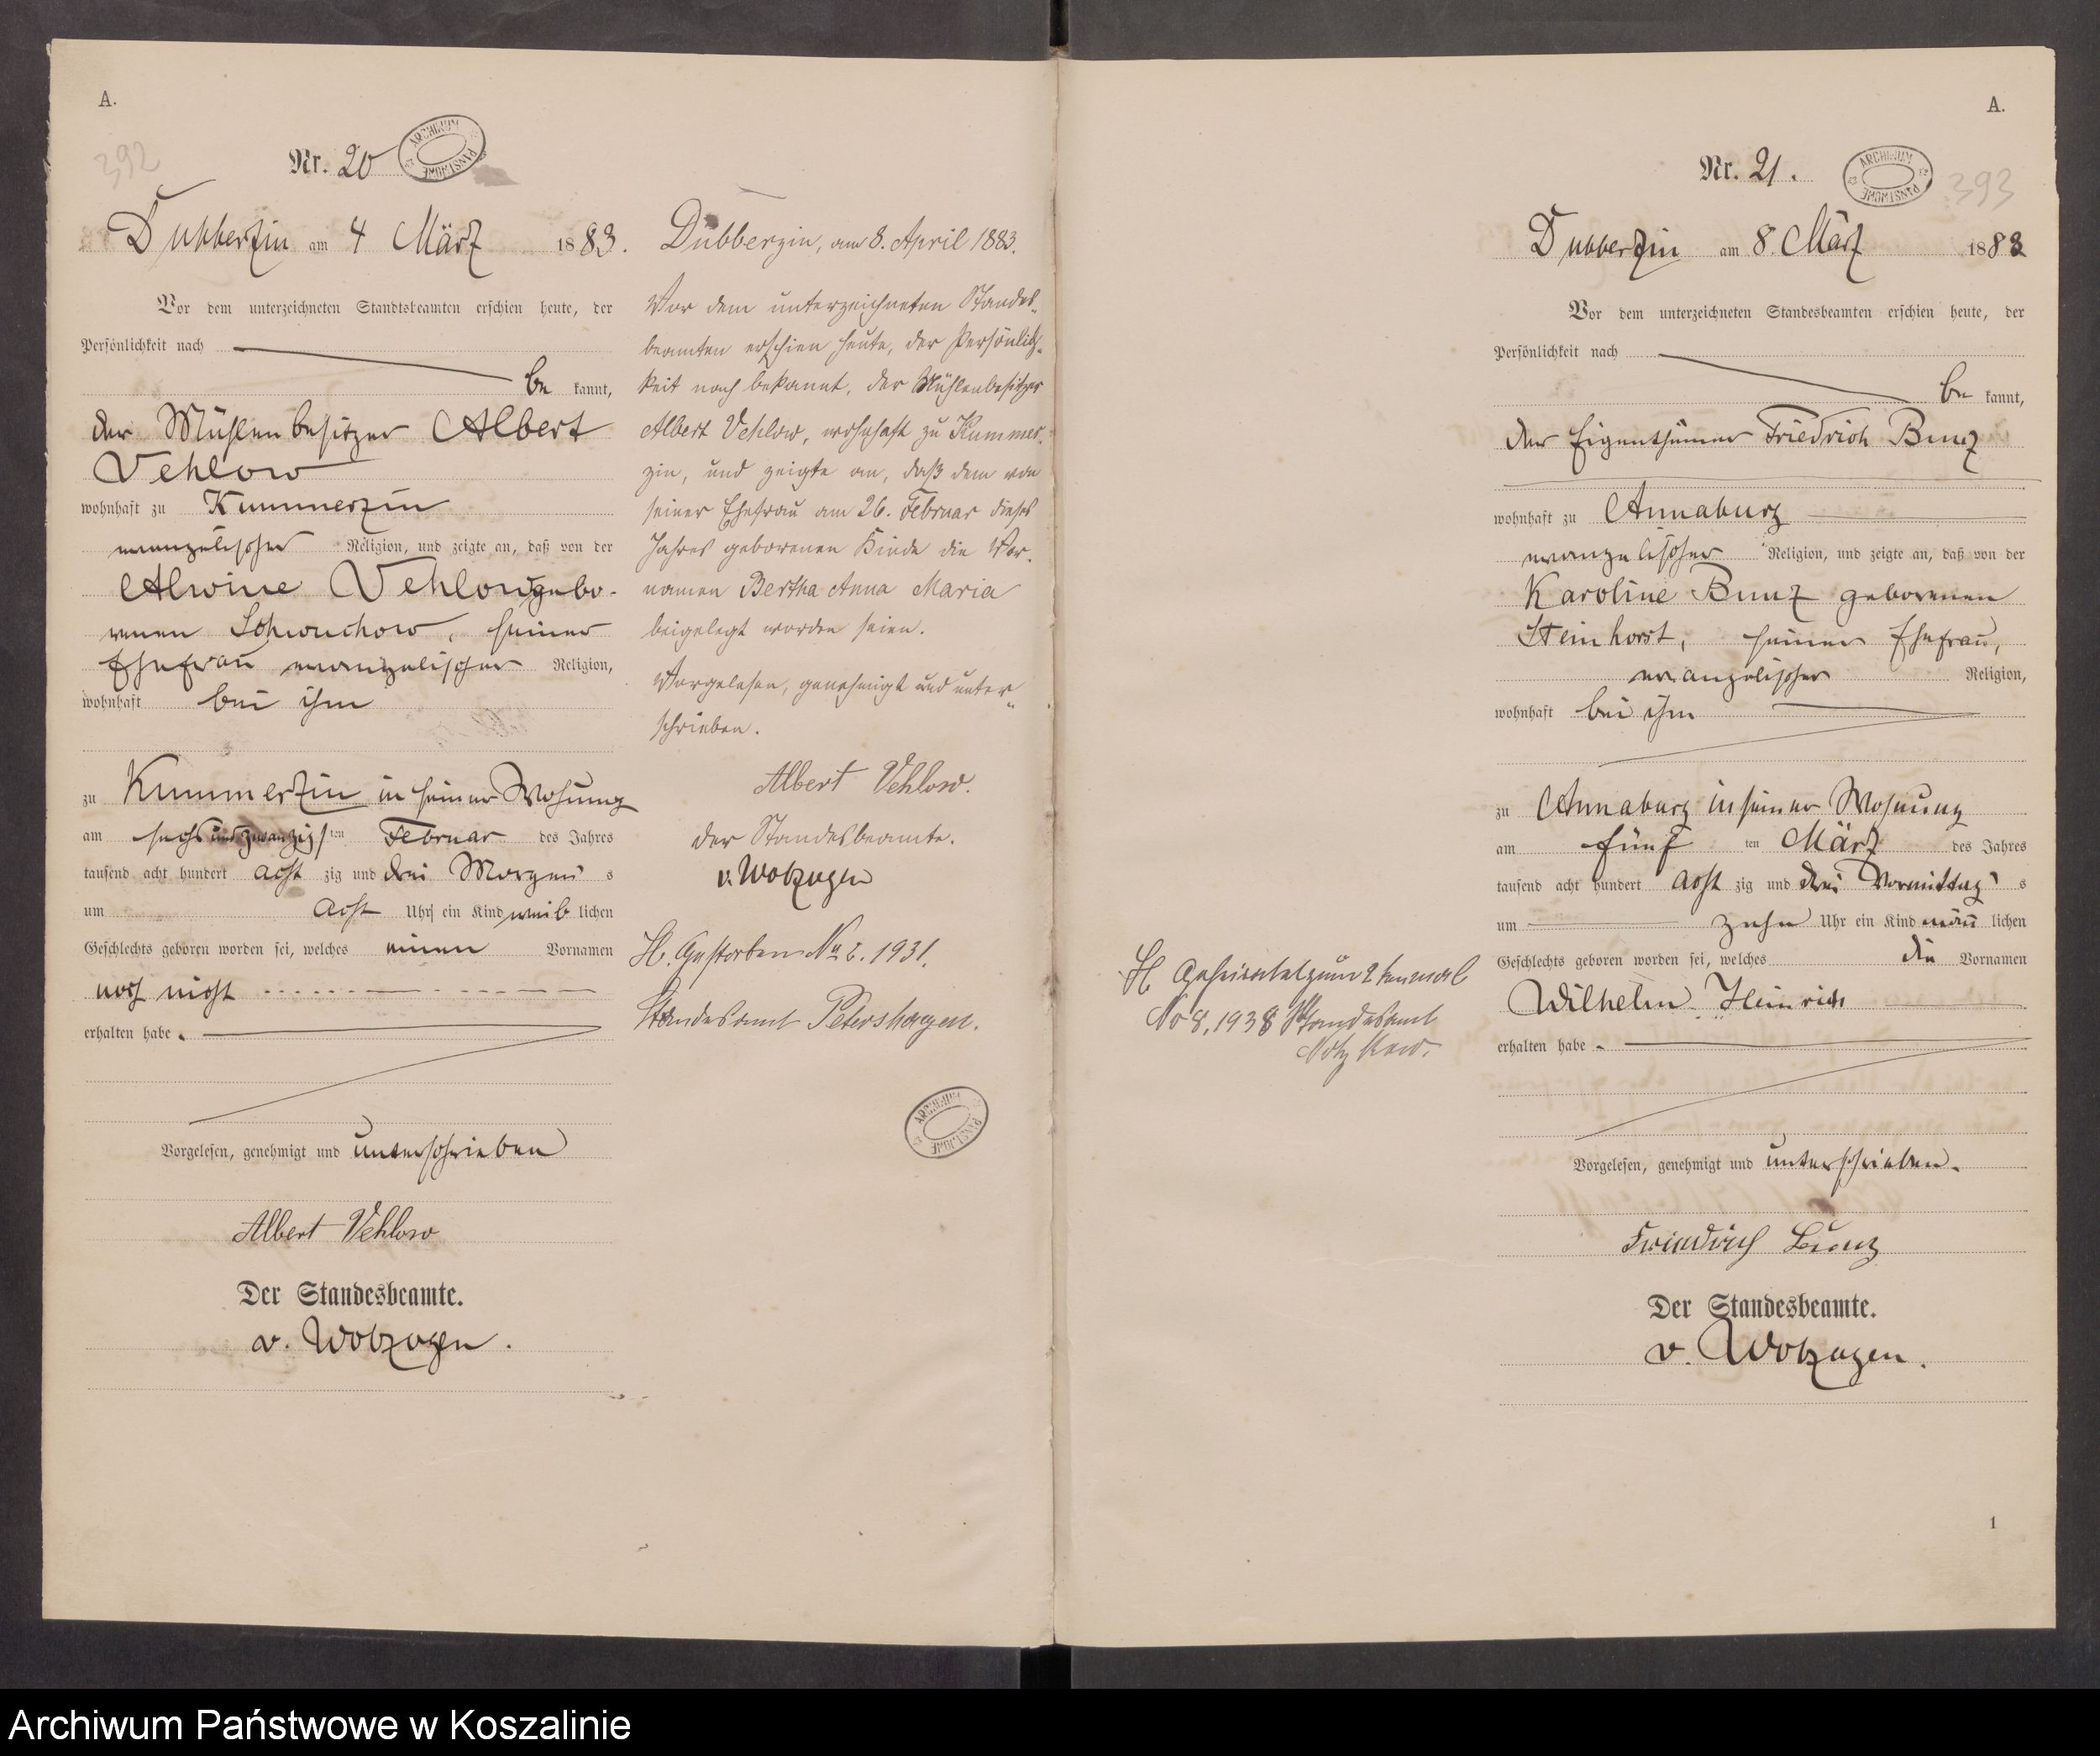 A.
392
Nr. 20
ARCHIWUM PAŃSTWOWE
Dubberzin am 4 März 1883.
Vor dem unterzeichneten Standtsbeamten erschien heute, der
Persönlichkeit nach
be kannt,
der Mühlenbesitzer Albert
Vehlow
wohnhaft zu Kummerzin
evangelischer Religion, und zeigte an, daß von der
Alwine Vehlow gebo-
renen Schwuchow, seiner
Ehefrau evangelischer Religion,
wohnhaft bei ihm
zu Kummerzin in seiner Wohnung
am sechsundzwanzigsten Februar des Jahres
tausend acht hundert acht zig und drei Morgens
um acht Uhr ein Kind weiblichen
Geschlechts geboren worden sei, welches einen Vornamen
noch nicht
erhalten habe.
Vorgelesen, genehmigt und unterschrieben
Albert Vehlow
Der Standesbeamte.
v. Wolzogen.
Dubberzin, am 8. April 1883.
Vor dem unterzeichneten Standes-
beamten erschien heute, der Persönlich-
keit nach bekannt, der Mühlenbesitzer
Albert Vehlow, wohnhaft zu Kummer-
zin, und zeigte an, daß dem von
seiner Ehefrau am 26. Februar dieses
Jahres geborenen Kinde die Vor-
namen Bertha Anna Maria
beigelegt worden seien.
Vorgelesen, genehmigt und unter-
schrieben.
Albert Vehlow.
Der Standesbeamte.
v. Wolzogen
H. Gestorben No 2. 1931.
Standesamt Petershagen.
ARCHIWUM PAŃSTWOWE
A.
Nr. 21.
ARCHIWUM PAŃSTWOWE
393
Dubberzin am 8. März 1883
Vor dem unterzeichneten Standesbeamten erschien heute, der
Persönlichkeit nach
be kannt,
der Eigenthümer Friedrich Bunz
wohnhaft zu Annaburg
evangelischer Religion, und zeigte an, daß von der
Karoline Bunz geborenen
Steinhorst, seiner Ehefrau,
evangelischer Religion,
wohnhaft bei ihm
zu Annaburg in seiner Wohnung
am fünf ten März des Jahres
tausend acht hundert acht zig und drei Vormittags
um zehn Uhr ein Kind männlichen
Geschlechts geboren worden sei, welches die Vornamen
Wilhelm Heinrich
erhalten habe.
H Geheiratet zum 2 tenmal
No 8, 1938 Standesamt
Vorgelesen, genehmigt und unterschrieben.
Friedrich Bunz
Der Standesbeamte.
v. Wolzogen.
1
Archiwum Państwowe w Koszalinie